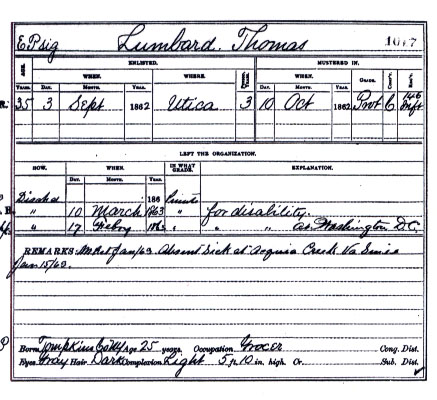 E P sig Lumbard. Thomas 1017
AGE. ENLISTED. MUSTERED IN.
YEARS. WHEN. WHERE. PERIOD, YEARS. WHEN. GRADE. COMP'Y. REG'T.
DAY. MONTH. YEAR. DAY. MONTH. YEAR.
35 3 Sept 1862 Utica 3 10 Oct 1862 Pvt C 146 Inft
LEFT THE ORGANIZATION.
HOW. WHEN. IN WHAT GRADE. EXPLANATION.
DAY. MONTH. YEAR.
Dischd 186
" 10 March 1863 " for disability.
" 17 Feby 186 " " " at Washington D.C.
REMARKS: Jan/63 Absent Sick at Acquia Creek Va Since
Jan 15/63.
Born Tompkins Co NY Age 25 years. Occupation Grocer Cong. Dist.
Eyes Gray Hair Dark Complexion Light 5 ft. 10 in. high. Cr. Sub. Dist.